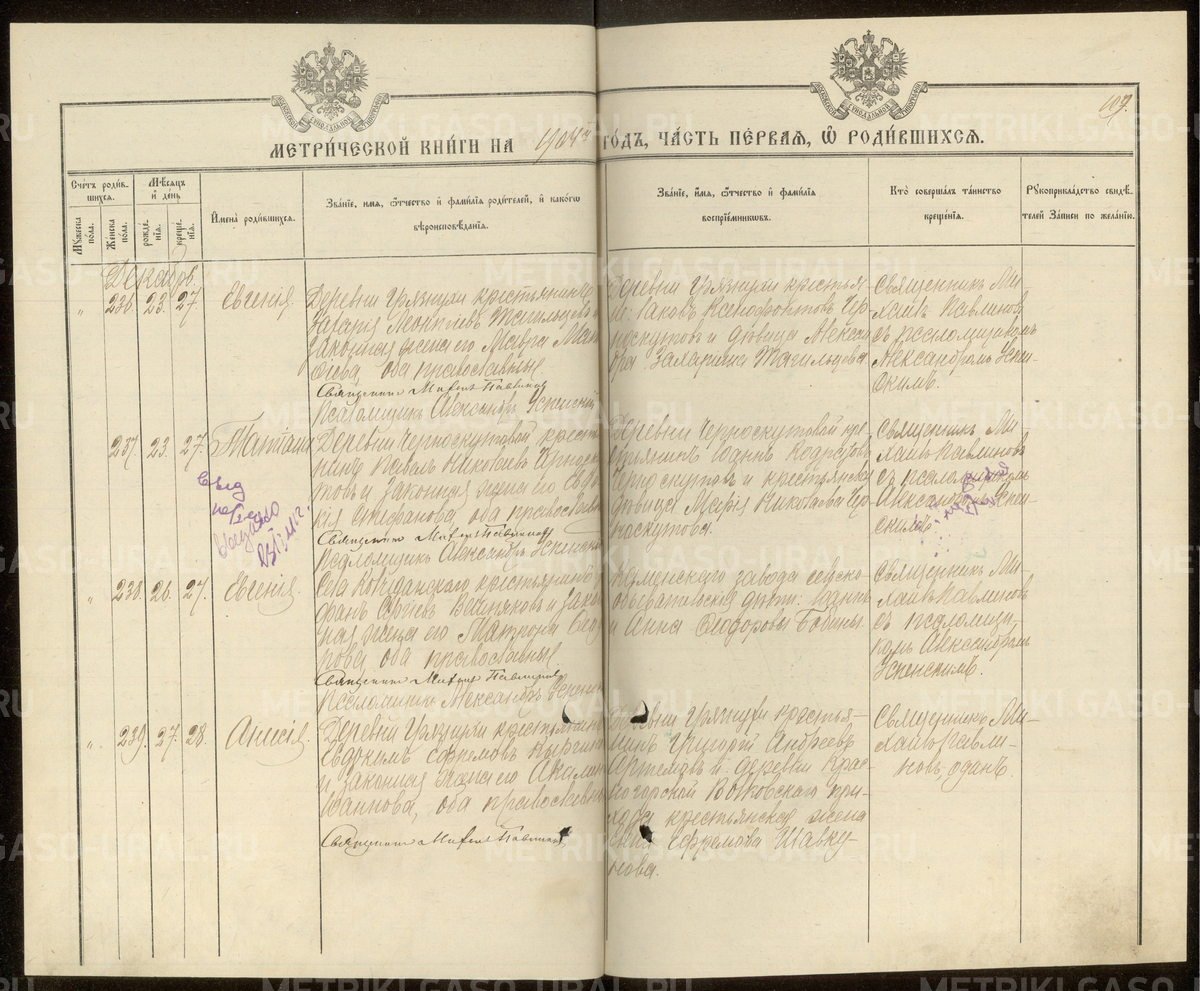 109.
МЕТРИ́ЧЕСКОЙ КНИ́ГИ НА 1904й ГОДЪ, ЧА́СТЬ ПЕ́РВАЯ, Ѿ РОДИ́ВШИХСЯ.
Счетъ роди́в-
шихся.
Му́жеска по́ла.
Же́нска по́ла.
Мѣ́сяцъ
и҆ де́нь
рожде́-
нїѧ.
креще́-
нїѧ.
И҆мена̀ роди́вшихся.
Зва́нїе, и҆́мя, ѻ҆́тчество и҆ фами́лїя роди́телей, и҆ како́гѡ
вѣроисповѣ́данїя.
Зва́нїе, и҆́мя, ѻ҆́тчество и҆ фами́лїя
воспрїе́мниковъ.
Кто̀ соверша́лъ та́инство
креще́нїя.
Рꙋкоприкла́дство свидѣ́-
телей за́писи по жела́нїю.
Декабрь
" 236. 23. 27. Евгенія.
Деревни Грязнухи крестьянинъ
Захарія Леонтіевъ Тагильцовъ и
законная жена его Мавра Мат-
ѳіева, оба православные.
Священникъ Михаилъ Павлиновъ
Псаломщикъ Александръ Успенскій
Деревни Грязнухи крестья-
Іаковъ Ксенофонтовъ Чер-
носкутовъ и дѣвица Алексан-
дра Захаріина Тагильцова.
Священникъ Ми-
хаилъ Павлиновъ
съ псаломщикомъ
Александромъ Успен-
скимъ.
237. 23. 27. Татіана
Деревни Черноскутовой кресть-
нинъ Павелъ Николаевъ Черноску-
товъ и законная жена его Евдо-
кія Стефанова, оба православные
Священникъ Михаилъ Павлиновъ
Псаломщикъ Александръ Успенскій
Деревни Черноскутовой кре-
стьянинъ Іоаннъ
Черноскутовъ и крестьянская
дѣвица Марія Николаева Чер-
носкутова.
Священникъ Ми-
хаилъ Павлиновъ
съ псаломщикомъ
Александромъ Успен-
скимъ.
выдано
" 238. 26. 27. Евгенія.
Села Колчеданскаго крестьянинъ
фанъ Сергіевъ и закон-
ная жена его Матрона Ѳео-
рова, оба православные.
Священникъ Михаилъ Павлиновъ
Псаломщикъ Александръ Успенскій
Каменскаго завода сельско-
обывательскія дѣти: Іоаннъ
и Анна Ѳеодоровы Бабины
Священникъ Ми-
хаилъ Павлиновъ
съ псаломщи-
комъ Александромъ
Успенскимъ.
" 239. 27. 28. Анисія.
Деревни Грязнухи крестьянинъ
Евдокимъ Ефремовъ
и законная жена его Акилина
Іоаннова, оба православные
Священникъ Михаилъ Павлиновъ
Деревни Грязнухи крестья-
нинъ Григорій Андреевъ
Артемовъ и деревни Крас-
ногорской Волковскаго при-
хода крестьянская жена
Ефремова Шавку-
нова.
Священникъ Ми-
хаилъ Павли-
новъ, одинъ.
METRIKI.GASO-URAL.RU